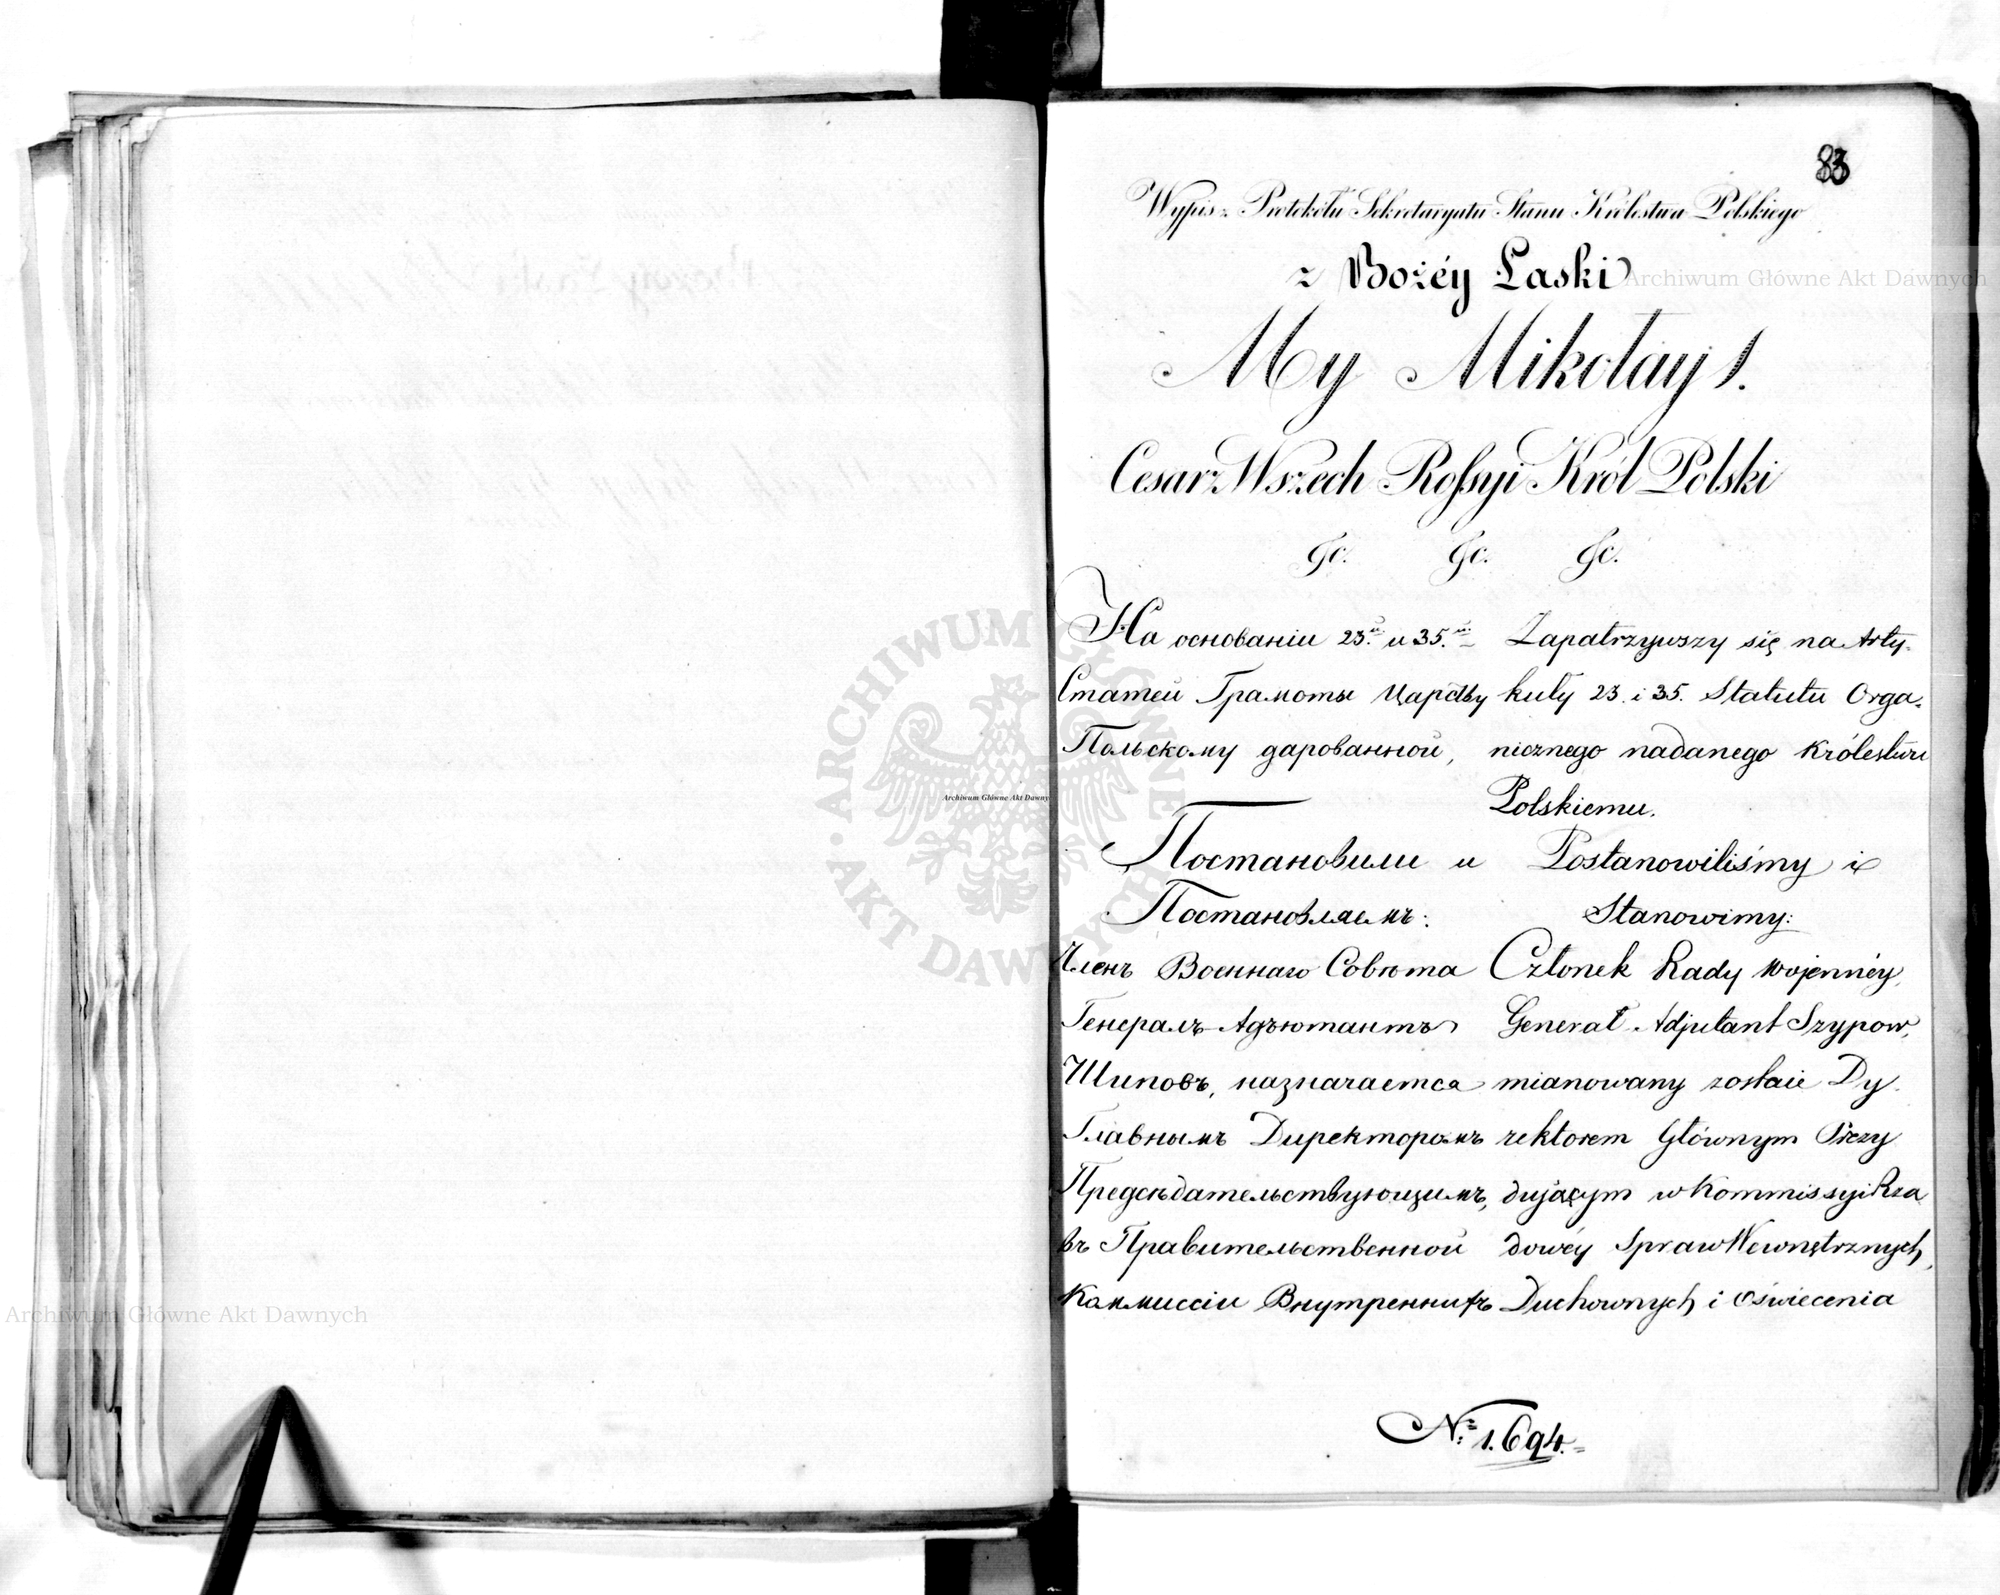 83
Wypis z Protokółu Sekretaryatu Stanu Królestwa Polskiego
z Bożéy Łaski
My Mikołay I.
Cesarz Wszech Rossyi Król Polski
&c. &c. &c.
На основаніи 23.й и 35.й
Статей Грамоты Царству
Польскому дарованной,
Постановили и
Постановляемъ:
Членъ Военнаго Совѣта
Генералъ-Адъютантъ
Шиповъ, назначается
Главнымъ Директоромъ
Предсѣдательствующимъ,
въ Правительственной
Коммиссіи Внутреннихъ
Zapatrzywszy się na Arty-
kuły 23. i 35. Statutu Orga-
nicznego nadanego Królestwu
Polskiemu.
Postanowiliśmy i
Stanowimy:
Członek Rady Wojennéy,
Generał-Adjutant Szypow,
mianowany zostaie Dy-
rektorem Głównym Prezy-
dującym w Kommissyi Rzą-
dowéy Spraw Wewnętrznych,
Duchownych i Oświecenia
No 1.694.
Archiwum Główne Akt Dawnych
Archiwum Główne Akt Dawnych
Archiwum Główne Akt Dawny
ARCHIWUM GŁÓWNE AKT DAWNYCH